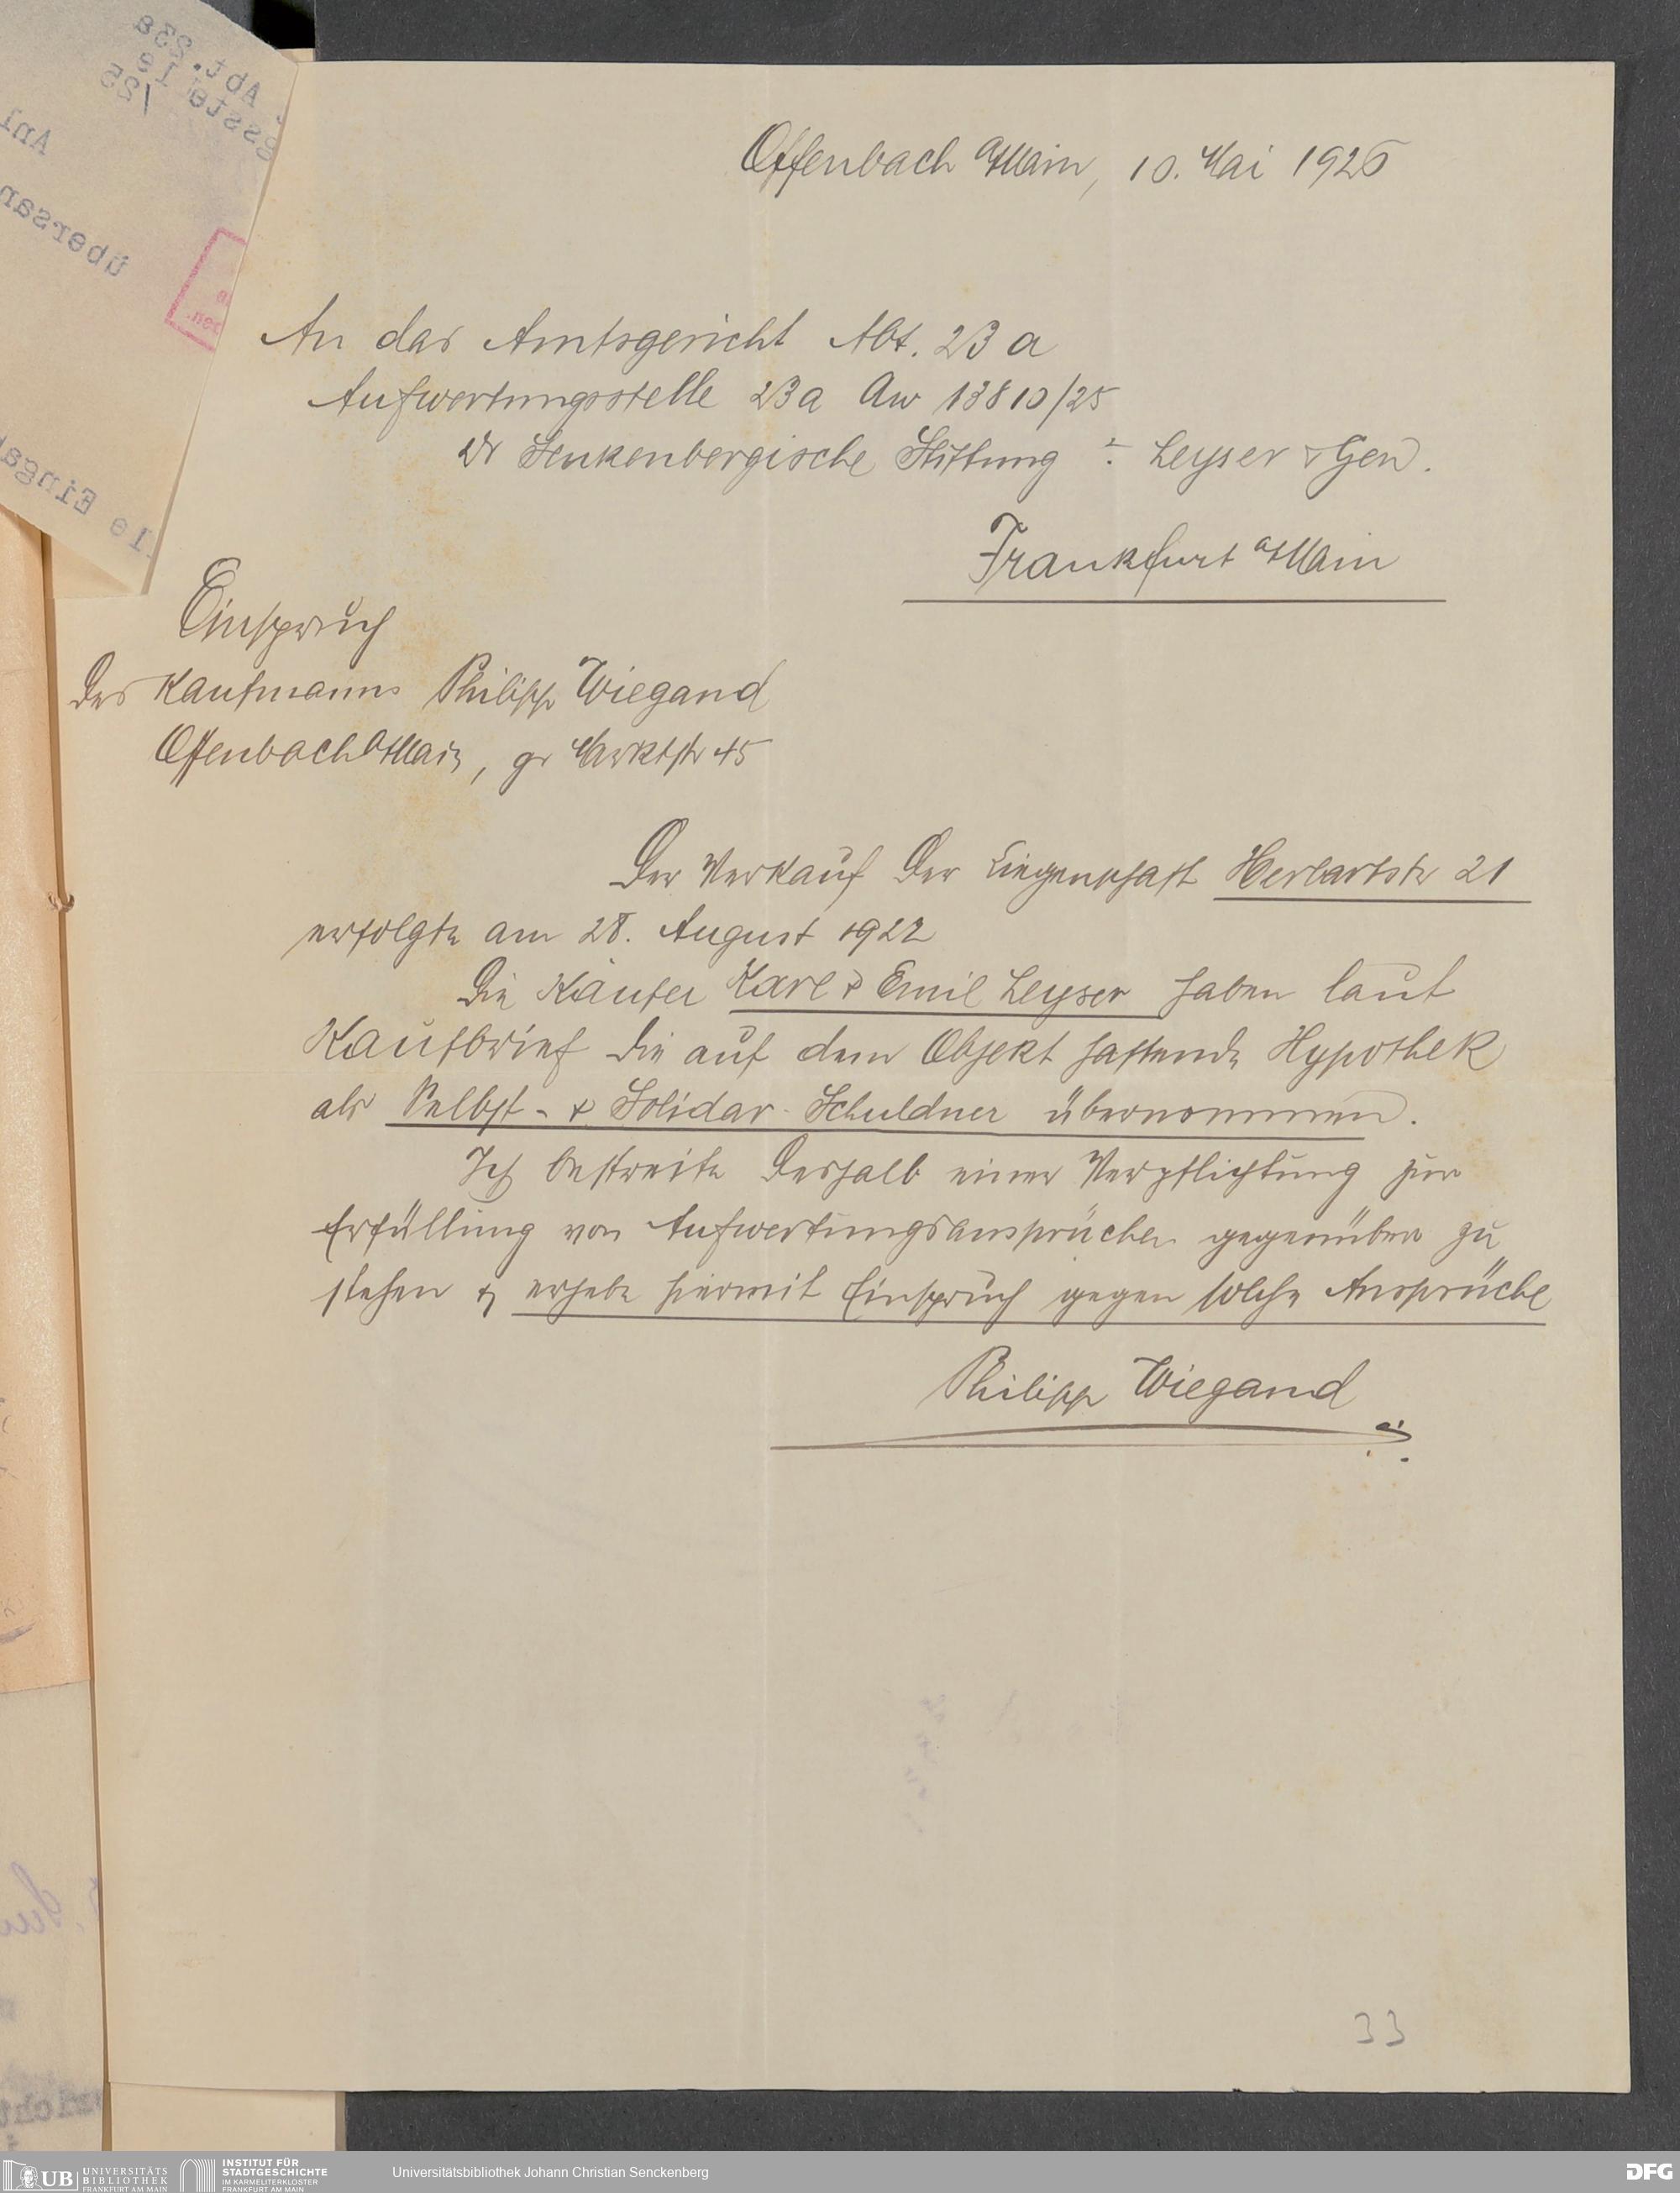 Offenbach a/Main, 10. Mai 1926
An das Amtsgericht Abt. 23 a
Aufwertungsstelle 23a Aw 13810/25
Dr Senkenbergische Stiftung ./. Leyser & Gen.
Frankfurt a/Main
Einspruch
des Kaufmanns Philipp Wiegand
Offenbach a/Main, gr Marktstr 45
Der Verkauf der Liegenschaft Herbartstr 21
erfolgte am 28. August 1922
Die Käufer Karl & Emil Leyser haben laut
Kaufbrief die auf dem Objekt haftende Hypothek
als Selbst- & Solidar-Schuldner übernommen.
Ich bestreite deshalb einer Verpflichtung zur
Erfüllung von Aufwertungsansprüchen gegenüber zu
stehen & erhebe hiermit Einspruch gegen solche Ansprüche
Philipp Wiegand
33
Abt. 23a
/25
übersan
UB UNIVERSITÄTS
BIBLIOTHEK
FRANKFURT AM MAIN
INSTITUT FÜR
STADTGESCHICHTE
IM KARMELITERKLOSTER
FRANKFURT AM MAIN
Universitätsbibliothek Johann Christian Senckenberg
DFG